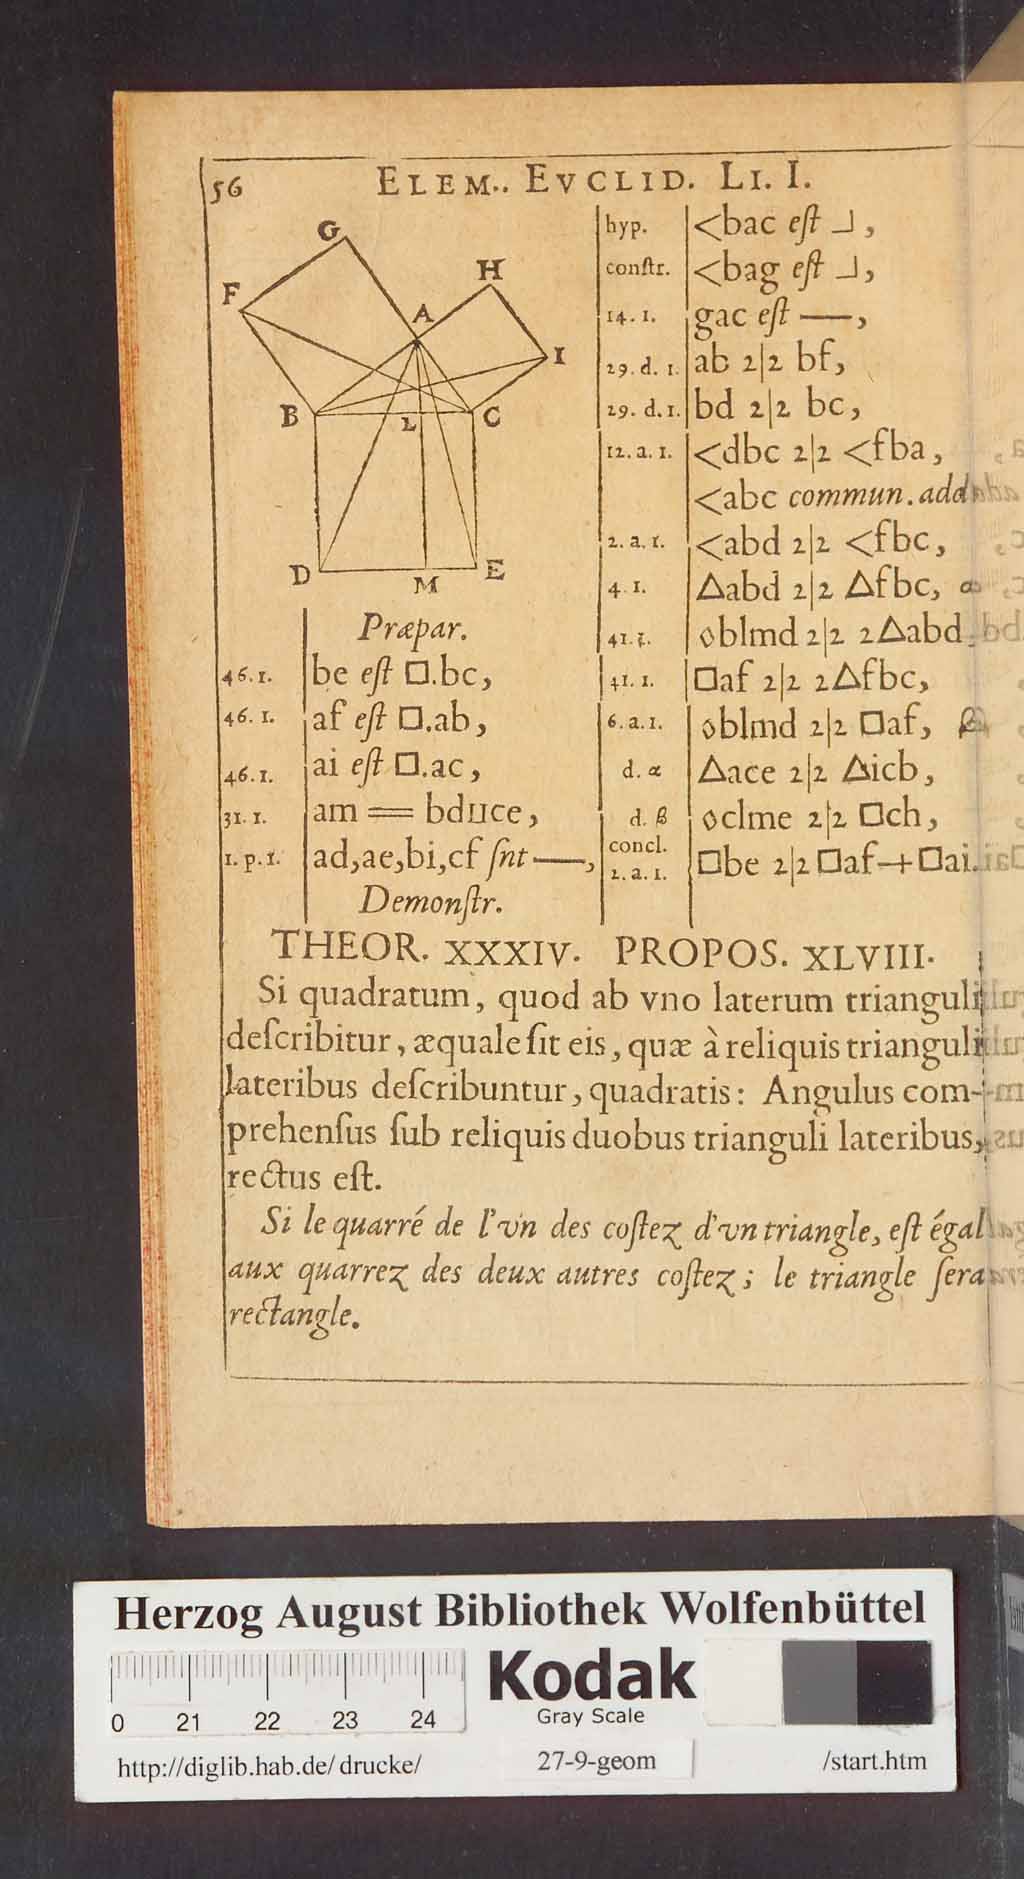 56 ELEM.. EVCLID. LI. I.
G
H
F
A
I
B
L
C
D
M
E
Præpar.
46. 1. be eſt □.bc,
46. 1. af eſt □.ab,
46. 1. ai eſt □.ac,
31. 1. am = bd⊔ce,
1. p. 1. ad,ae,bi,cf ſnt —,
Demonſtr.
hyp. <bac eſt ┘,
conſtr. <bag eſt ┘,
14. 1. gac eſt —,
29. d. 1. ab 2|2 bf,
29. d. 1. bd 2|2 bc,
12. a. 1. <dbc 2|2 <fba,
<abc commun. add
2. a. 1. <abd 2|2 <fbc,
4. 1. △abd 2|2 △fbc, α
41. 1. ◇blmd 2|2 2△abd,
41. 1. □af 2|2 2△fbc,
6. a. 1. ◇blmd 2|2 □af, β
d. α △ace 2|2 △icb,
d. β ◇clme 2|2 □ch,
concl.
2. a. 1. □be 2|2 □af+□ai.
THEOR. XXXIV. PROPOS. XLVIII.
Si quadratum, quod ab vno laterum trianguli
deſcribitur, æquale ſit eis, quæ à reliquis trianguli
lateribus deſcribuntur, quadratis: Angulus com-
prehenſus ſub reliquis duobus trianguli lateribus,
rectus eſt.
Si le quarré de l'vn des coſtez d'vn triangle, eſt égal
aux quarrez des deux autres coſtez; le triangle ſera
rectangle.
Herzog August Bibliothek Wolfenbüttel
0 21 22 23 24
Kodak
Gray Scale
http://diglib.hab.de/drucke/ 27-9-geom /start.htm